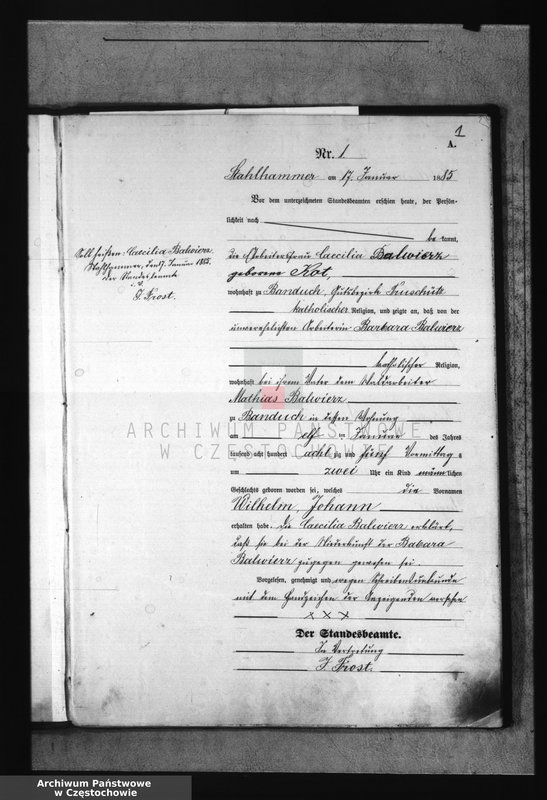 1
A.
Nr. 1.
Stahlhammer am 17. Januar 1885
Vor dem unterzeichneten Standesbeamten erschien heute, der Persön-
lichkeit nach
be kannt,
die Arbeiterfrau Caecilia Balwierz
geborene Kot,
wohnhaft zu Banduch, Gutsbezirk
katholischer Religion, und zeigte an, daß von der
unverehelichten Arbeiterin Barbara Balwierz
katholischer Religion,
wohnhaft bei ihrem Vater dem Waldarbeiter
Mathias Balwierz
zu Banduch in dessen Wohnung
am elf ten Januar des Jahres
tausend acht hundert acht zig und fünf Vormittag s
um zwei Uhr ein Kind männlichen
Geschlechts geboren worden sei, welches die Vornamen
Wilhelm, Johann
erhalten habe. Die Caecilia Balwierz erklärt,
daß sie bei der Niederkunft der Babara
Balwierz zugegen gewesen sei.
Vorgelesen, genehmigt und wegen Schreibensunkunde
mit dem Handzeichen der Anzeigenden versehen
x x x
Der Standesbeamte.
In Vertretung
J. Frost.
Soll heißen: Caecilia Balwierz.
Stahlhammer, den 17. Januar 1885.
Der Standesbeamte
i. V.
J. Frost.
ARCHIWUM PAŃSTWOWE
W CZĘSTOCHOWIE
Archiwum Państwowe
w Częstochowie